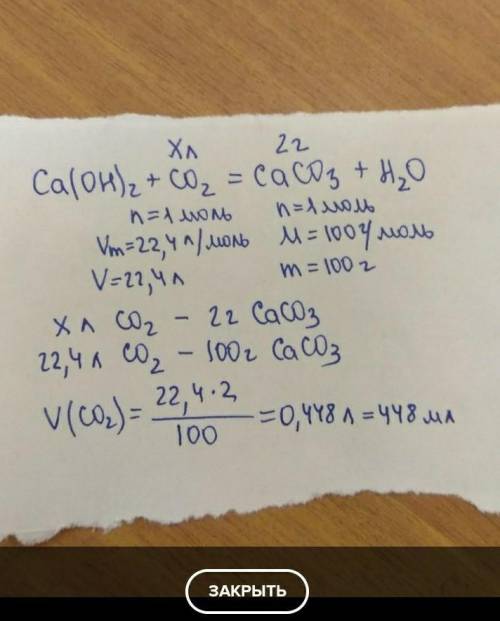 xл 2г
Ca(OH)₂ + CO₂ = CaCO₃ + H₂O
n=1 моль n=1 моль
Vm=22,4 л/моль M=100 г/моль
V=22,4 л m=100 г
x л CO₂ – 2г CaCO₃
22,4 л CO₂ – 100г CaCO₃
V(CO₂)= 22,4·2 / 100 =0,448 л=448 мл
ЗАКРЫТЬ